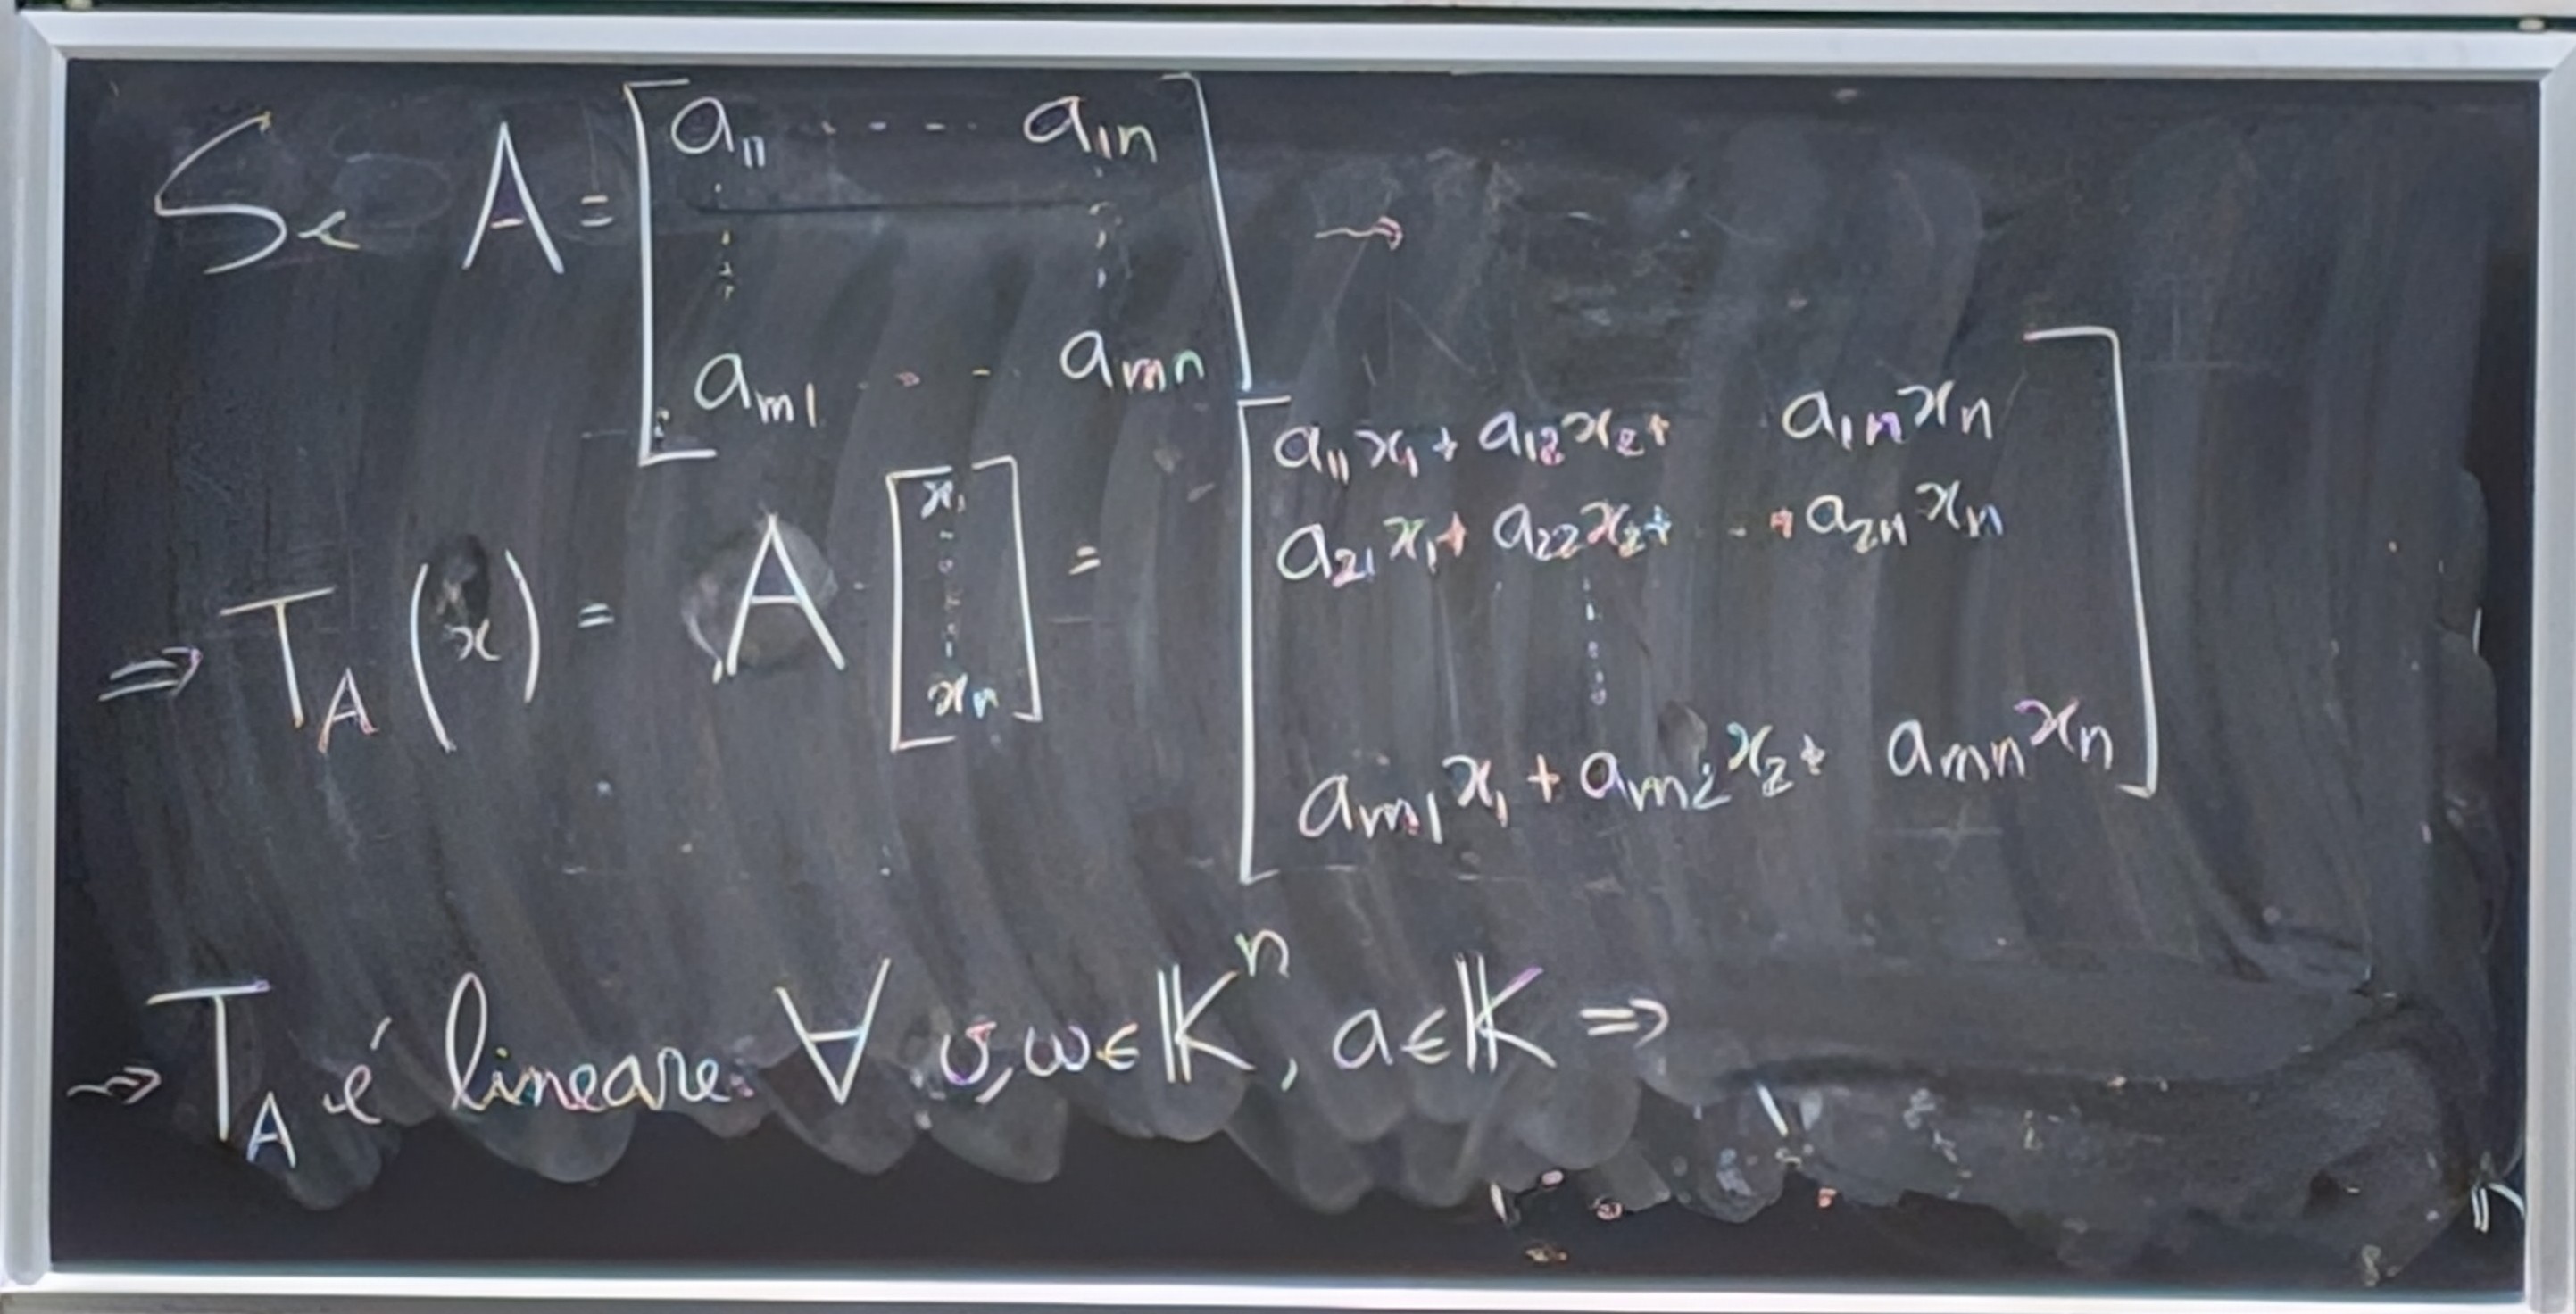 Se A = [a₁₁ ---- a₁ₙ ⋮ ⋮ aₘ₁ --- aₘₙ] →
⇒ T_A(x) = A [x₁ ⋮ xₙ] = [a₁₁x₁ + a₁₂x₂ + a₁ₙxₙ
a₂₁x₁ + a₂₂x₂ + .. + a₂ₙxₙ
⋮
aₘ₁x₁ + aₘ₂x₂ + aₘₙxₙ]
→ T_A é lineare: ∀ v, w ∈ 𝕂ⁿ, a ∈ 𝕂 ⇒